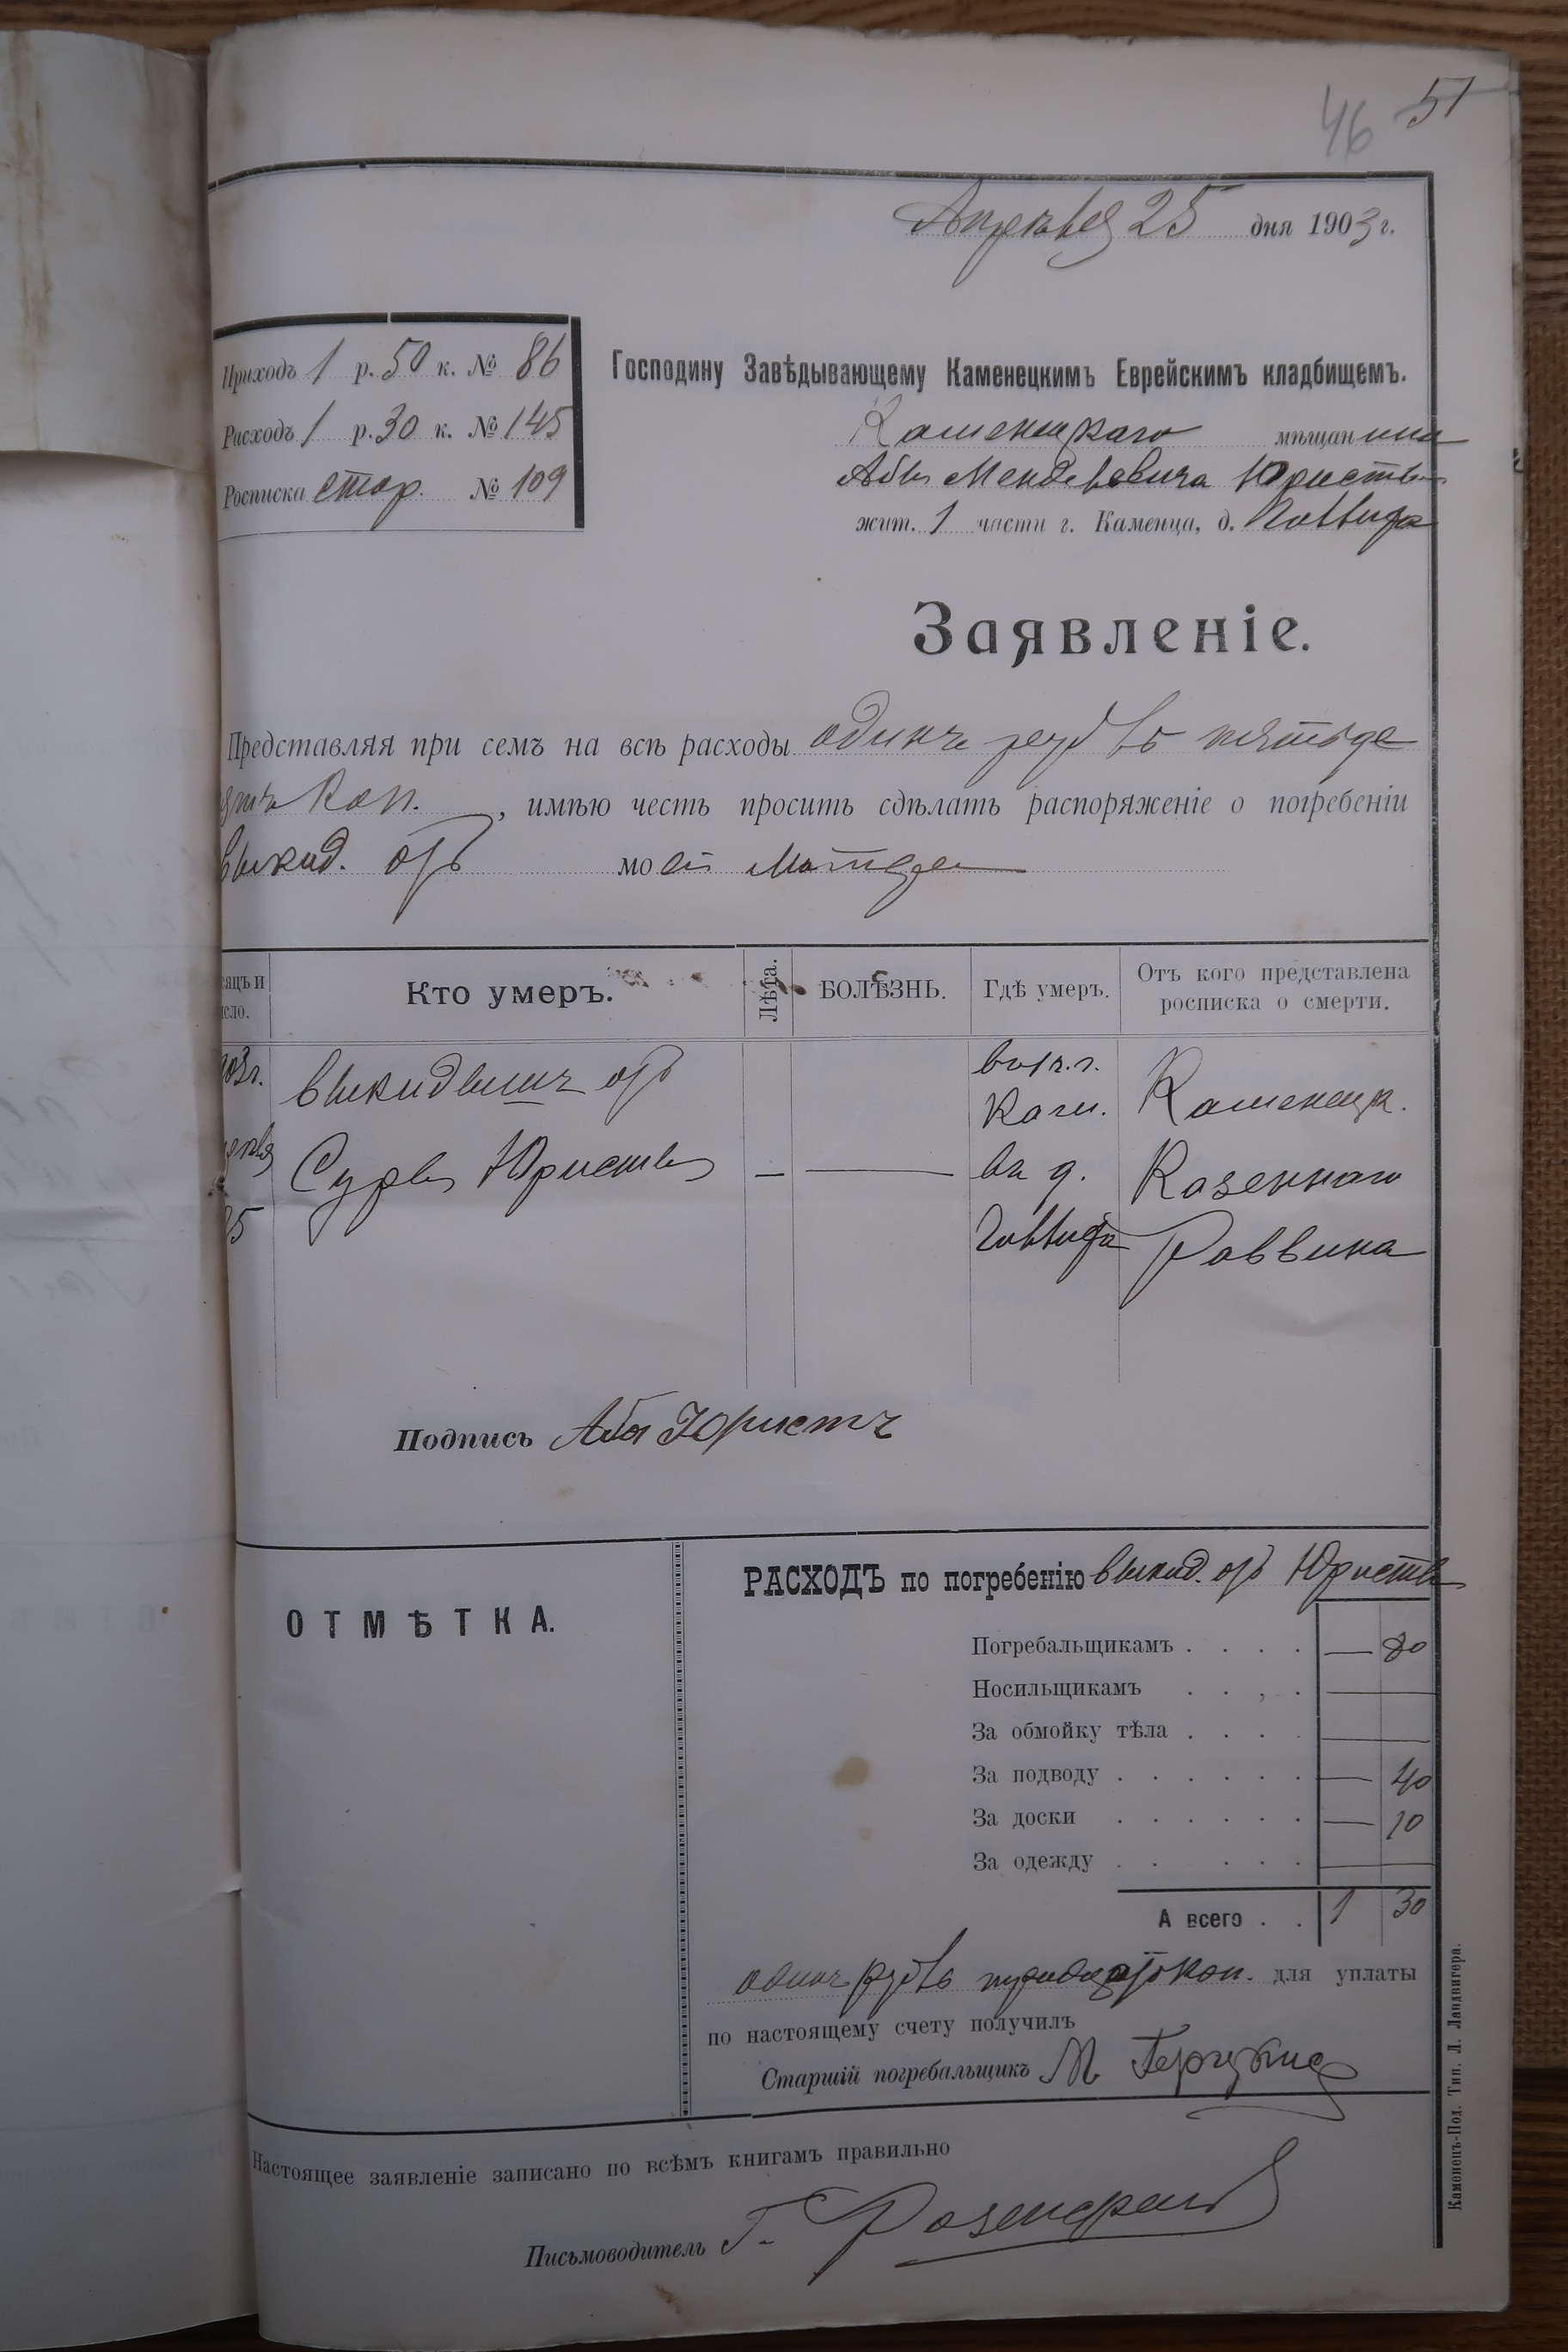 46 51
Апреля 25 дня 1903 г.
Приходъ 1 р. 50 к. № 86
Расходъ 1 р. 30 к. № 145
Росписка стор. № 109
Господину Завѣдывающему Каменецкимъ Еврейскимъ кладбищемъ.
Каменецкаго мѣщанина
Абы Менделевича Юриста
жит. 1 части г. Каменца, д.
Заявленіе.
Представляя при семъ на всѣ расходы одинъ рубль пятьде
сятъ коп., имѣю честь просить сдѣлать распоряженіе о погребеніи
выкид. отъ моей
сяцъ и
исло.
Кто умеръ.
Лѣта.
БОЛѢЗНЬ.
Гдѣ умеръ.
Отъ кого представлена
росписка о смерти.
903г.
преля
25
выкидышъ отъ
Суры Юристъ
—
—
въ г.
Кам.
въ д.
Каменецк.
Казеннаго
Раввина
Подпись Аба Юристъ
ОТМѢТКА.
РАСХОДЪ по погребенію выкид. отъ Юристъ
Погребальщикамъ . . . . — 80
Носильщикамъ . . , .
За обмойку тѣла . . . .
За подводу . . . . . . — 40
За доски . . . . . . — 10
За одежду . . . . .
А всего . . 1 30
одинъ рубль тридцать коп. для уплаты
по настоящему счету получилъ
Старшій погребальщикъ М.
Настоящее заявленіе записано по всѣмъ книгамъ правильно
Письмоводитель Г.
Каменецъ-Под. Тип. Л. Ландвигера.